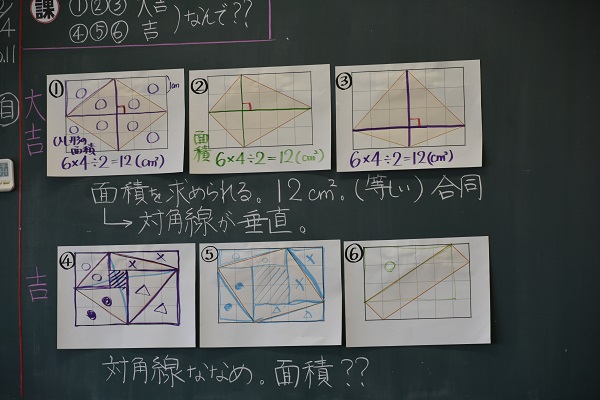 課 ①②③ 大吉 ) なんで??
④⑤⑥ 吉
自
大吉
① 1cm
ひし形の面積
6×4÷2=12(cm²)
②
面積 6×4÷2=12(cm²)
③
6×4÷2=12(cm²)
面積を求められる。12cm²。(等しい) 合同
↳対角線が垂直。
吉
④
⑤
⑥
対角線ななめ。面積??